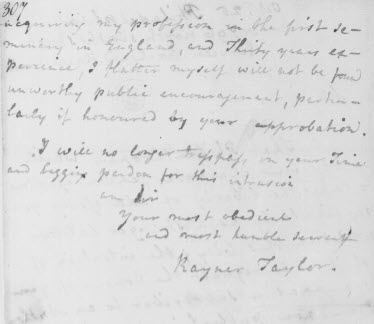 307
acquiring my profession in the first se-
minary in England, and Thirty years ex-
perience, I flatter myself will not be found
unworthy public encouragement, particu-
larly if honoured by your approbation.
I will no longer tresspass, on your Time
and begging pardon for this intrusion
am Sir
Your most obedient
and most humble servant
Rayner Taylor.